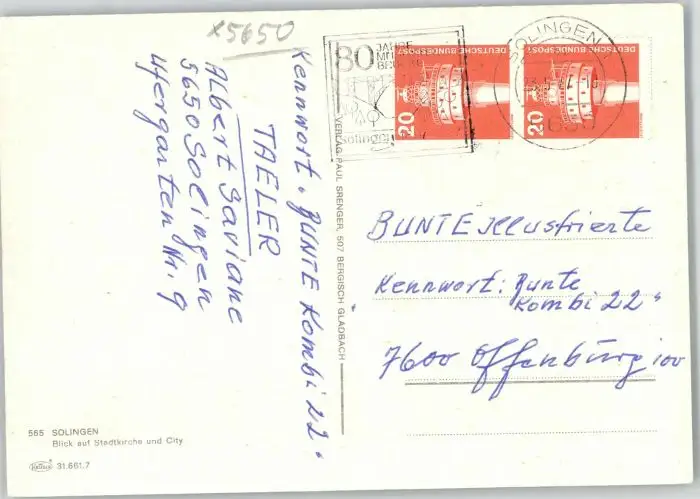 x5650
Kennwort: BUNTE Kombi 22"
TAELER
Albert Saviane
5650 Solingen
Ufergarten Nr. 9
80 JAHRE
Solingen
SOLINGEN 1
DEUTSCHE BUNDESPOST
20
DEUTSCHE BUNDESPOST
20
VERLAG PAUL SRENGER, 507 BERGISCH GLADBACH
BUNTE Illustrierte
Kennwort: Bunte
Kombi 22"
7600 Offenburg 100
565 SOLINGEN
Blick auf Stadtkirche und City
31.661.7